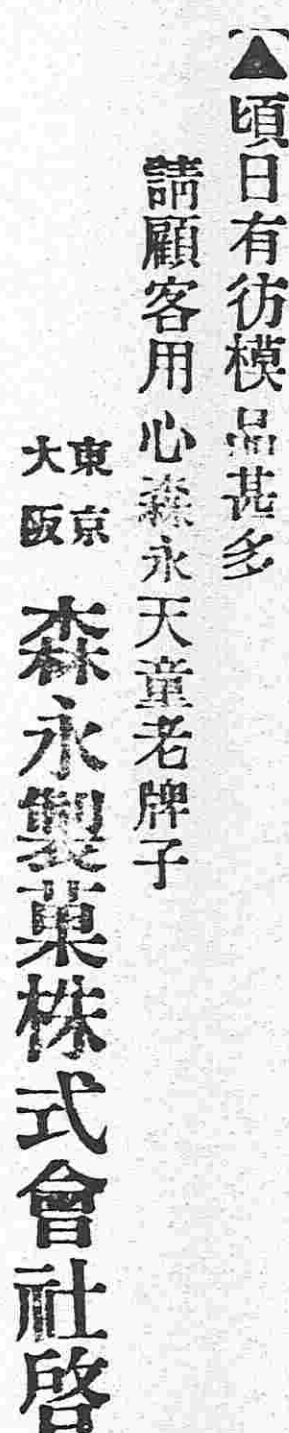 ▲頃日有彷模品甚多
請顧客用心森永天童老牌子
東京
大阪
森永製菓株式會社啓